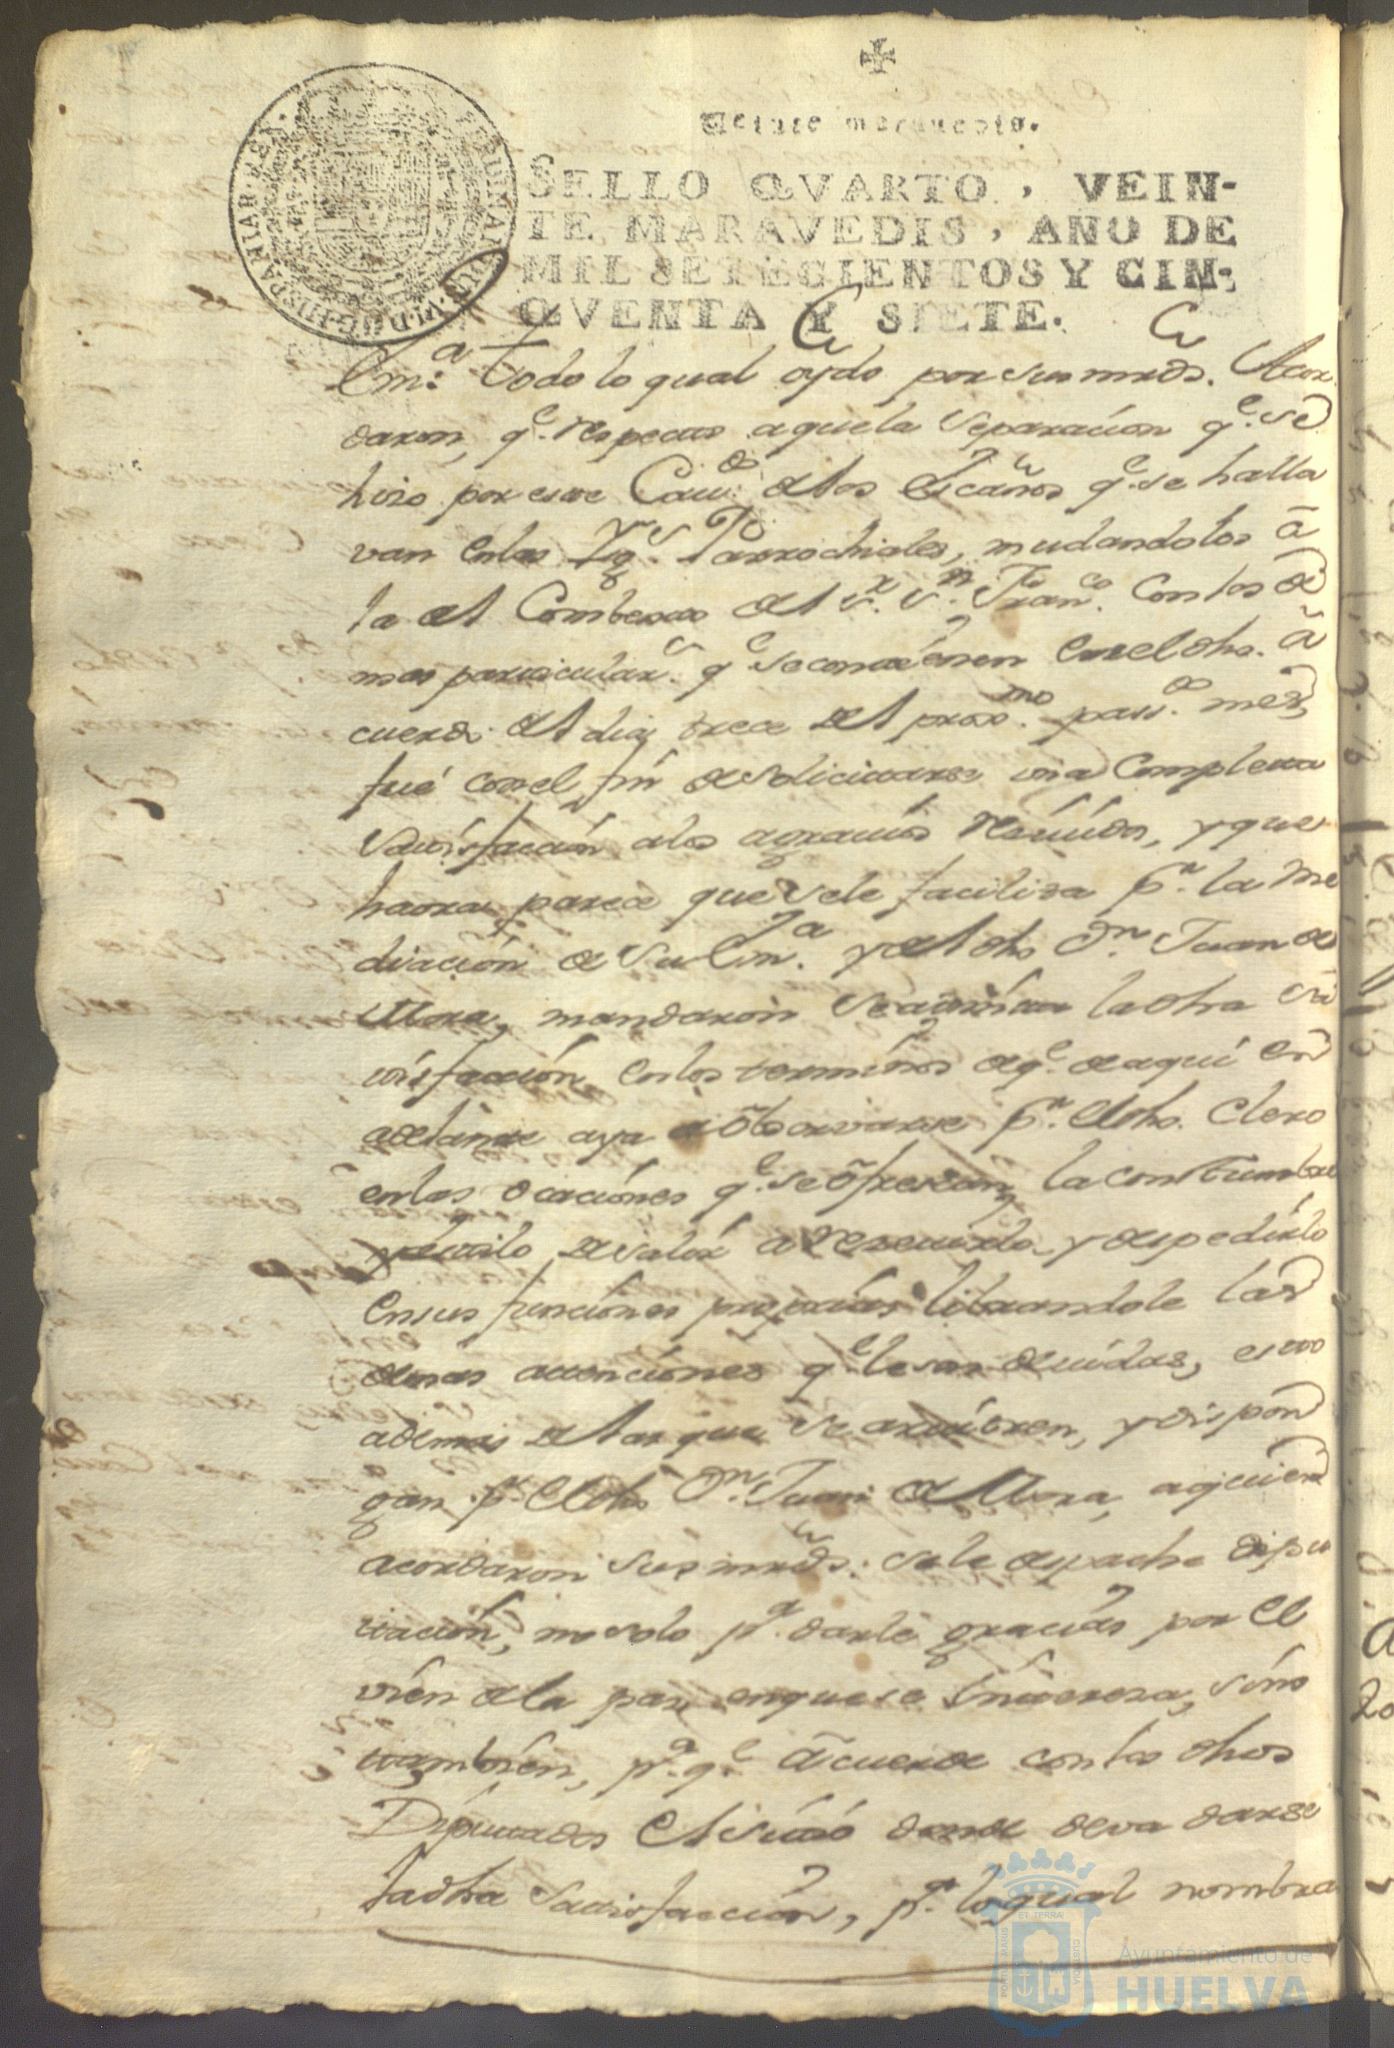 Veinte maravedis.
SELLO QVARTO, VEIN-
TE MARAVEDIS, AÑO DE
MIL SETECIENTOS Y CIN-
QVENTA Y SIETE.
HISPANIAR·REX
VI·D·G
Em.ª Todo lo qual oydo por sus mrds. Acor
daron, q.e respecto aquela separacion q.e se
hizo por este Cav.do de los escaños q.e se halla
van en las Yg.s Parrochiales, mudandolos â
la del Combento del S.r S.n Fran.co con los de
mas particular.s q.e se contienen en el dho. â
cuerdo del dia trece del proxo.mo pass.do mes,
fué con el fin de solicitarse una completa
satisfacción a los agravios recividos, y que
haora parece que se le facilita p.r la me
diación de Su Em.ª y del dho D.n Juan de
Mora, mandaron se admita la dha sa
tisfacción en los terminos de q.e de aqui en
adelante aya de obserbarse p.r el dho. Clero
en las ocaciónes q.e se ofrescan la constumbre
de salir a recevirlo y despedirlo
en sus funciones librandole las
demas attenciónes q.e le son devidas, esto
ademas de lo que se arvitren, y dispon
gan p.r el dho D.n Juan de Mora, a quien
acordaron sus mrds. se le despache dipu
tación, no solo p.ª darle gracias por el
vien de la paz en que se interesa, sino
tambien, p.ª q.e acuerde con los dhos
Diputados el sitio donde deva darse
la dha satisfacción, p.ª lo qual nombra
Ayuntamiento de
HUELVA